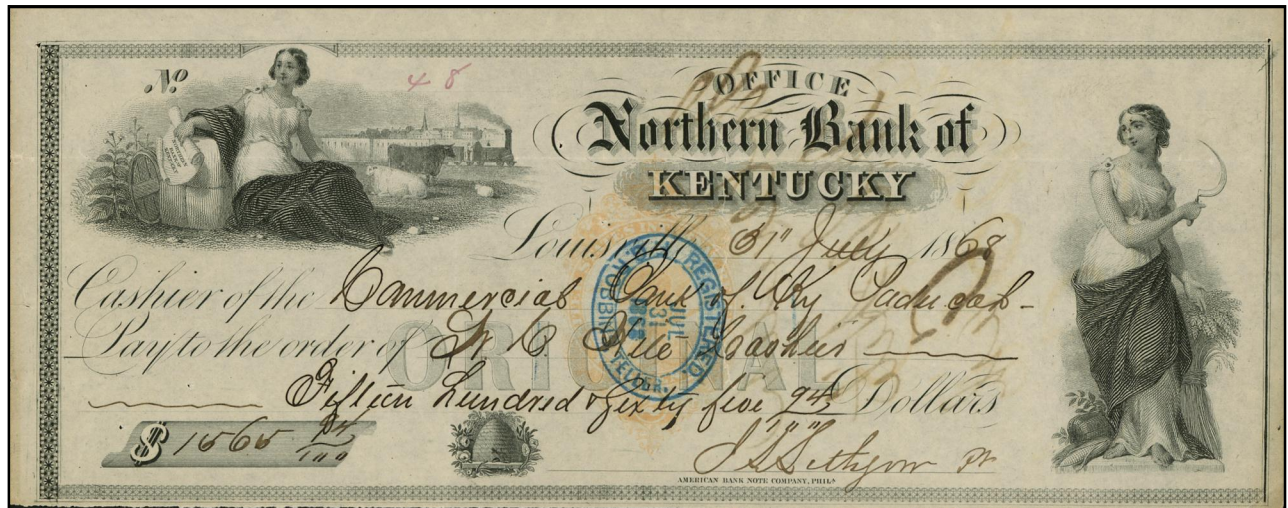 No. 48
OFFICE
Northern Bank of
KENTUCKY
Louisville 31" July 1868
Cashier of the Commercial Bank of Ky Paducah
Pay to the order of Cashier
ORIGINAL
Fifteen hundred & sixty five 94/100 Dollars
$ 1565 94/100
REGISTERED
JUL
31
TELLER.
AMERICAN BANK NOTE COMPANY, PHILA